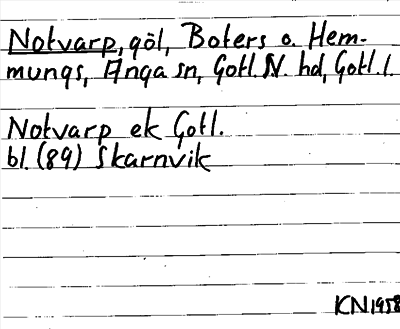 Notvarp, göl, Boters o. Hem-
mungs, Änga sn, Gotl. N. hd, Gotl. l.
Notvarp ek Gotl.
bl. (89) Skarnvik
KN 1958